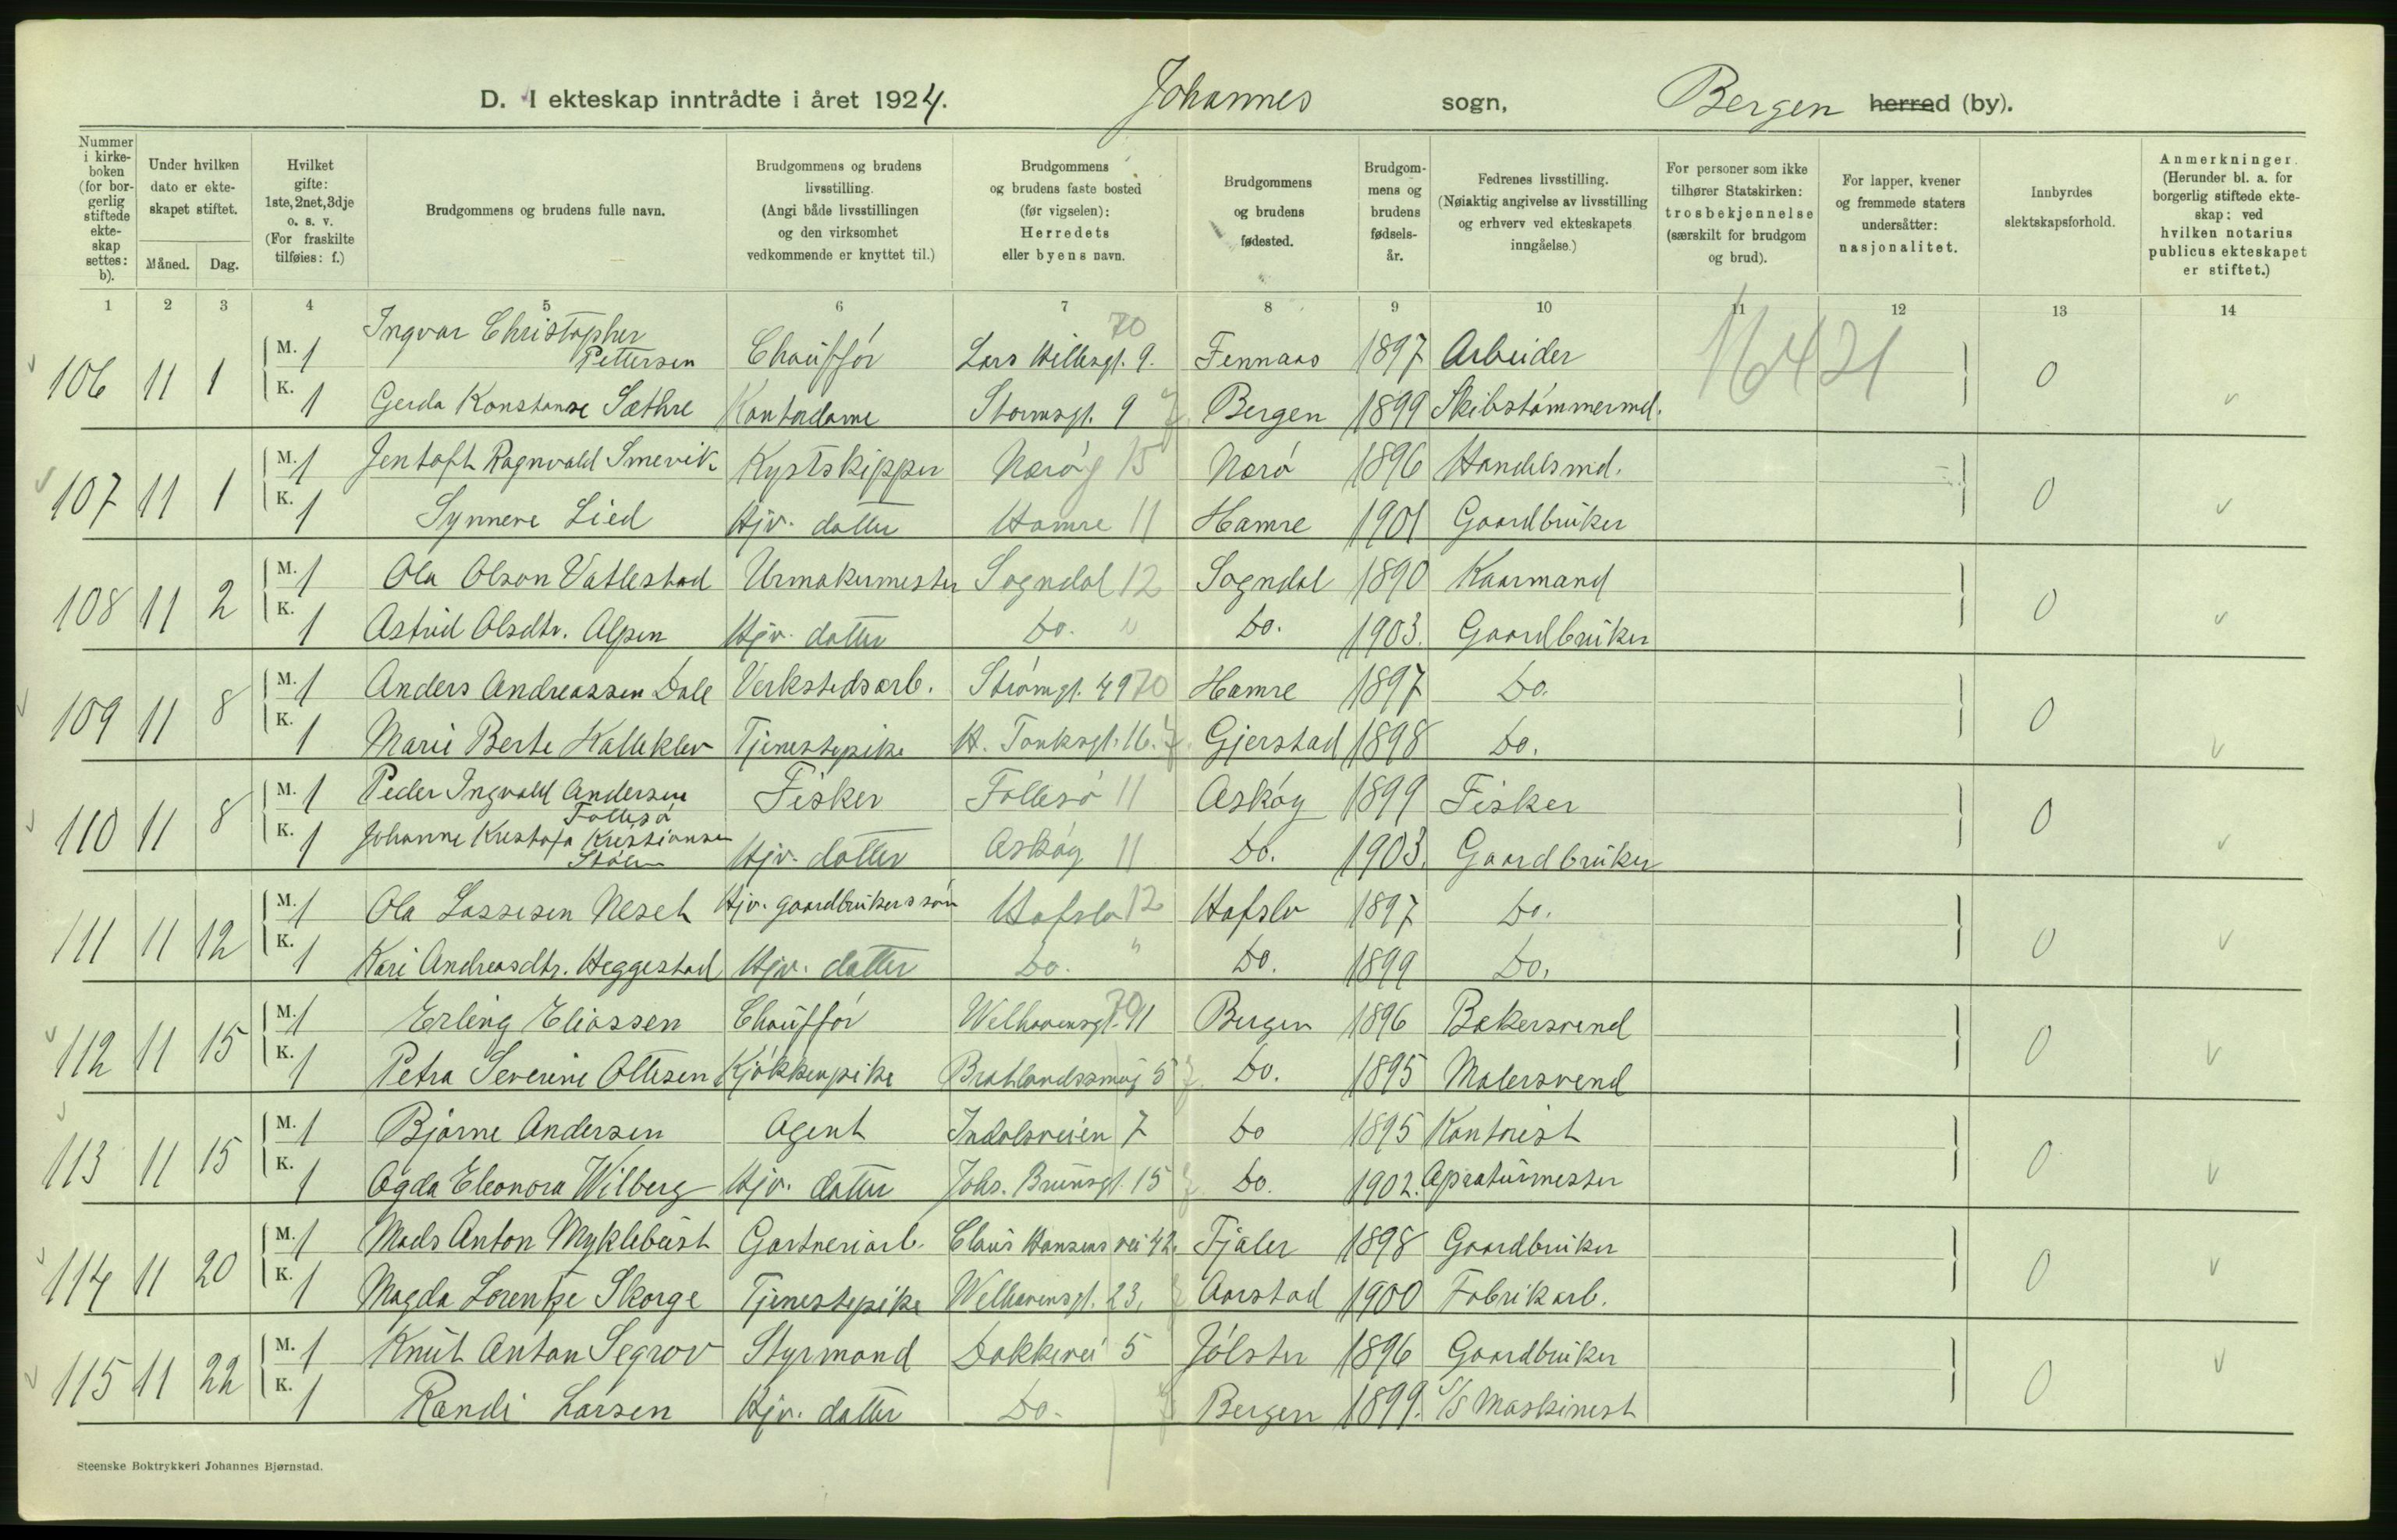 D. I ekteskap inntrådte i året 1924. Johannes sogn, Bergen herred (by).
Nummer i kirkeboken (for borgerlig stiftede ekteskap settes: b).
Under hvilken dato er ekteskapet stiftet.
Måned. Dag.
Hvilket gifte: 1ste, 2net, 3dje o. s. v. (For fraskilte tilføies: f.)
Brudgommens og brudens fulle navn.
Brudgommens og brudens livsstilling. (Angi både livsstillingen og den virksomhet vedkommende er knyttet til.)
Brudgommens og brudens faste bosted (før vigselen): Herredets eller byens navn.
Brudgommens og brudens fødested.
Brudgommens og brudens fødselsår.
Fedrenes livsstilling. (Nøiaktig angivelse av livsstilling og erhverv ved ekteskapets inngåelse.)
For personer som ikke tilhører Statskirken: trosbekjennelse (særskilt for brudgom og brud).
For lapper, kvener og fremmede staters undersåtter: nasjonalitet.
Innbyrdes slektskapsforhold.
Anmerkninger. (Herunder bl. a. for borgerlig stiftede ekteskap: ved hvilken notarius publicus ekteskapet er stiftet.)
1 2 3 4 5 6 7 8 9 10 11 12 13 14
16421
106 11 1 M. 1 Ingvar Christopher Pettersen Chauffør Lars Hillesgt. 9. 70 Fennaas 1897 Arbeider 0
K. 1 Gerda Konstanse Sæthre Kontordame Stormsgt. 9 Bergen 1899 Skibstømmermd.
107 11 1 M. 1 Jentoft Ragnvald Smevik Kystskipper Nærøy 15 Nærø 1896 Handelsmd. 0
K. 1 Synneve Lied Hjv. datter Hamre 11 Hamre 1901 Gaardbruker
108 11 2 M. 1 Ola Olson Vatlestad Urmakermester Sogndal 12 Sogndal 1890 Kaarmand 0
K. 1 Astrid Olsdtr. Alpen Hjv. datter Do. " Do. 1903. Gaardbruker
109 11 8 M. 1 Anders Andreassen Dale Verkstedsarb. Strømgt. 49 70 Hamre 1897 Do. 0
K. 1 Marie Berte Kalleklev Tjenestepike H. Tanksgt. 16. Gjerstad 1898 Do.
110 11 8 M. 1 Peder Ingvald Andersen Follesø Fisker Follesø 11 Askøy 1899 Fisker 0
K. 1 Johanne Kristofa Kristiansen Stølen Hjv. datter Askøy 11 Do. 1903. Gaardbruker
111 11 12 M. 1 Ola Lassesen Neset Hjv. gaardbrukerssøn Hafslo 12 Hafslo 1897 Do. 0
K. 1 Kari Andreasdtr. Heggestad Hjv. datter Do. " Do. 1899 Do.
112 11 15 M. 1 Erling Eliassen Chauffør Welhavensgt. 91 70 Bergen 1896 Bakersvend 0
K. 1 Petra Severine Ottesen Kjøkkenpike Bratlandssmug 5 Do. 1895 Malersvend
113 11 15 M. 1 Bjarne Andersen Agent Indalsveien 7 Do 1895 Kontorist 0
K. 1 Agda Eleonora Wilberg Hjv. datter Johs. Brunsgt. 15 Do. 1902. Apraturmester
114 11 20 M. 1 Mads Anton Myklebust Gartneriarb. Claus Hansens vei 42. Fjaler 1898 Gaardbruker 0
K. 1 Magda Lorentze Skorge Tjenestepike Welhavensgt. 23. Aarstad 1900 Fabrikarb.
115 11 22 M. 1 Knut Anton Segrov Styrmand Dokkevei 5 Jølster 1896 Gaardbruker 0
K. 1 Randi Larsen Hjv. datter Do. Bergen 1899. S/S Maskinist
Steenske Boktrykkeri Johannes Bjørnstad.